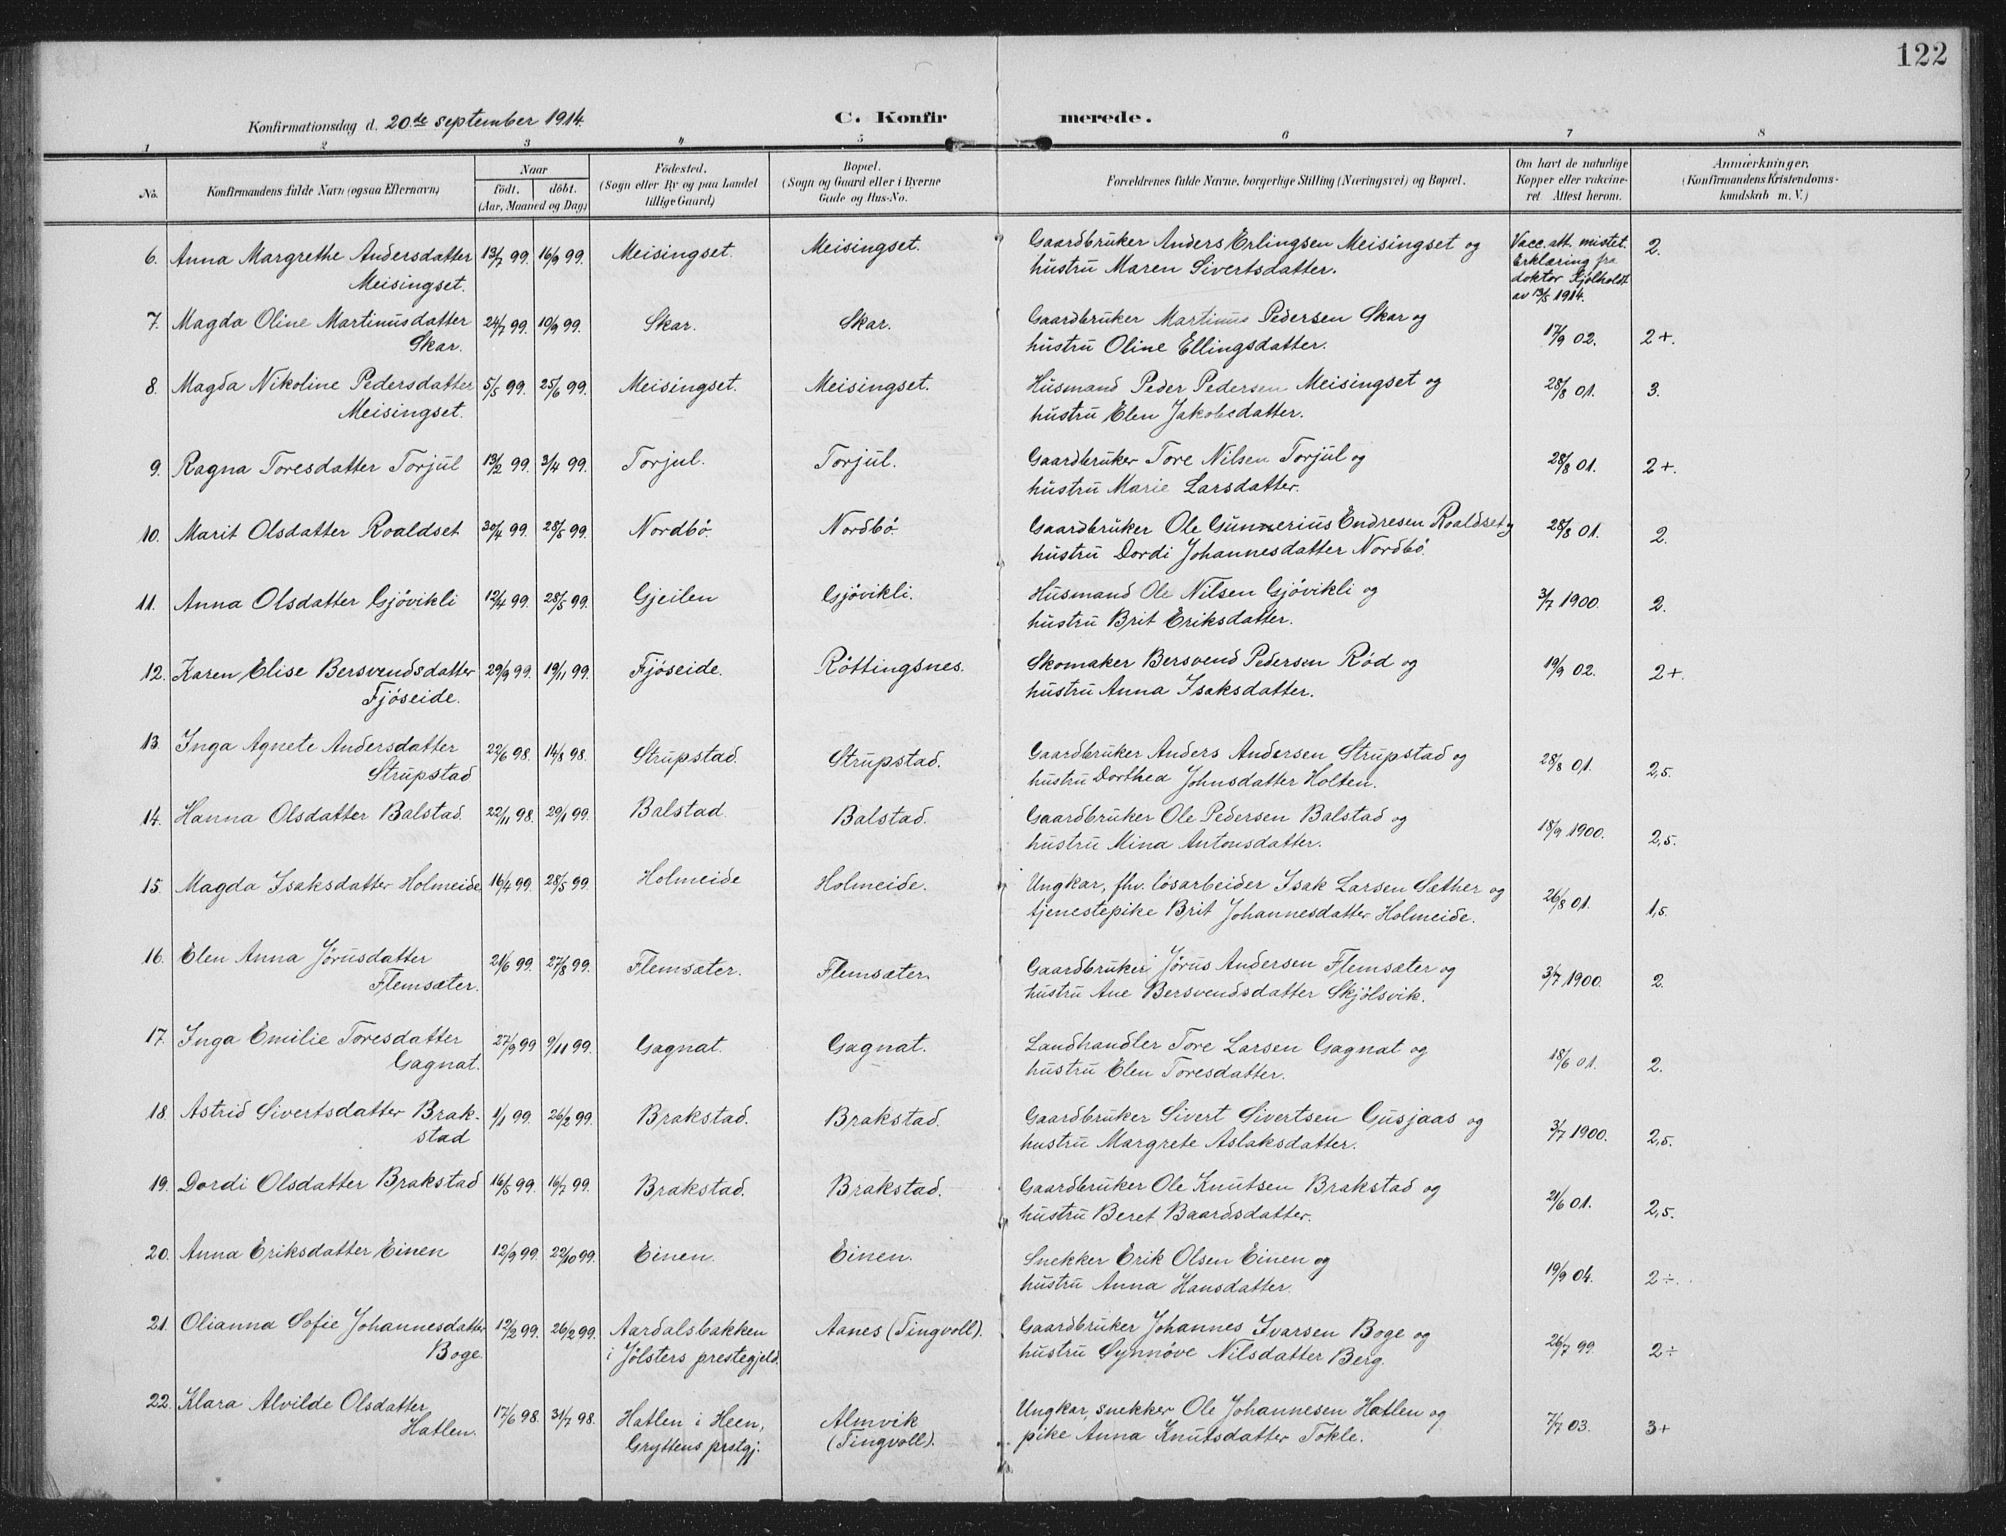 122
Konfirmationsdag d. 20de september 1914.
C. Konfirmerede.
1 2 3 4 5 6 7 8
No.
Konfirmandens fulde Navn (ogsaa Efternavn)
Naar
født. døbt.
(Aar, Maaned og Dag)
Fødested.
(Sogn eller By og paa Landet
tillige Gaard)
Bopæl.
(Sogn og Gaard eller i Byerne
Gade og Hus-No.
Forældrenes fulde Navne, borgerlige Stilling (Næringsvei) og Bopæl.
Om havt de naturlige
Kopper eller vakcine-
ret Attest herom.
Anmærkninger.
(Konfirmandens Kristendoms-
kundskab m. V.)
6. Anna Margrethe Andersdatter 13/7 99. 16/9 99. Meisingset. Meisingset. Gaardbruker Anders Erlingsen Meisingset og Vacc. att. mistet. 2.
Meisingset. hustru Maren Sivertsdatter. Erklæring fra
doktor Kjølholdt
av 13/5 1914.
7. Magda Oline Martinusdatter 24/7 99. 10/9 99. Skar. Skar. Gaardbruker Martinus Pedersen Skar og 17/9 02. 2+.
Skar. hustru Oline Ellingsdatter.
8. Magda Nikoline Pedersdatter 5/5 99. 25/6 99. Meisingset. Meisingset. Husmand Peder Pedersen Meisingset og 28/8 01. 3.
Meisingset. hustru Elen Jakobsdatter.
9. Ragna Toresdatter Torjul 13/2 99. 3/4 99. Torjul. Torjul. Gaardbruker Tore Nilsen Torjul og 28/8 01. 2+.
hustru Marie Larsdatter.
10. Marit Olsdatter Roaldset 30/4 99. 28/5 99. Nordbø. Nordbø. Gaardbruker Ole Gunnerius Endresen Roaldset og 28/8 01. 2.
hustru Dordi Johannesdatter Nordbø.
11. Anna Olsdatter Gjøvikli 12/4 99. 28/5 99. Gjeilen Gjøvikli. Husmand Ole Nilsen Gjøvikli og 3/7 1900. 2.
hustru Brit Eriksdatter.
12. Karen Elise Bersvendsdatter 29/9 99. 19/11 99. Fjøseide. Røttingsnes. Skomaker Bersvend Pedersen Rød og 19/9 02. 2+.
Fjøseide. hustru Anna Isaksdatter.
13. Inga Agnete Andersdatter 22/6 98. 14/8 98. Strupstad. Strupstad. Gaardbruker Anders Andersen Strupstad og 28/8 01. 2,5.
Strupstad hustru Dorthea Johnsdatter Holten.
14. Hanna Olsdatter Balstad. 22/11 98. 29/1 99. Balstad. Balstad. Gaardbruker Ole Pedersen Balstad og 18/9 1900. 2,5.
hustru Mina Antonsdatter.
15. Magda Isaksdatter Holmeide 16/4 99. 28/5 99. Holmeide Holmeide. Ungkar, fhv. løsarbeider Isak Larsen Sæther og 26/8 01. 1,5.
tjenestepike Brit Johannesdatter Holmeide.
16. Elen Anna Jørusdatter 21/6 99. 27/8 99. Flemsæter. Flemsæter. Gaardbruker Jørus Andersen Flemsæter og 3/7 1900. 2.
Flemsæter. hustru Ane Bersvendsdatter Skjølsvik.
17. Inga Emilie Toresdatter 27/9 99 9/11 99. Gagnat. Gagnat. Landhandler Tore Larsen Gagnat og 18/6 01. 2.
Gagnat. hustru Elen Toresdatter.
18. Astrid Sivertsdatter Brak- 1/1 99. 26/2 99. Brakstad. Brakstad. Gaardbruker Sivert Sivertsen Gusjaas og 3/7 1900. 2,5.
stad hustru Margrete Aslaksdatter.
19. Dordi Olsdatter Brakstad 16/5 99. 16/7 99. Brakstad. Brakstad. Gaardbruker Ole Knutsen Brakstad og 21/6 01. 2,5.
hustru Beret Baardsdatter.
20. Anna Eriksdatter Einen 12/9 99. 22/10 99. Einen. Einen. Snekker Erik Olsen Einen og 19/9 04. 2÷.
hustru Anna Hansdatter.
21. Olianna Sofie Johannesdatter 12/2 99. 26/2 99. Aardalsbakken Aanes (Tingvoll). Gaardbruker Johannes Ivarsen Boge og 26/7 99. 2÷
Boge. i Jølsters prestegjeld. hustru Synnøve Nilsdatter Berg.
22. Klara Alvilde Olsdatter 17/6 98. 31/7 98. Hatlen i Heen, Almvik Ungkar, snekker Ole Johannesen Hatlen og 7/7 03. 3+
Hatlen. Gryttens prstgj. (Tingvoll). pike Anna Knutsdatter Tokle.